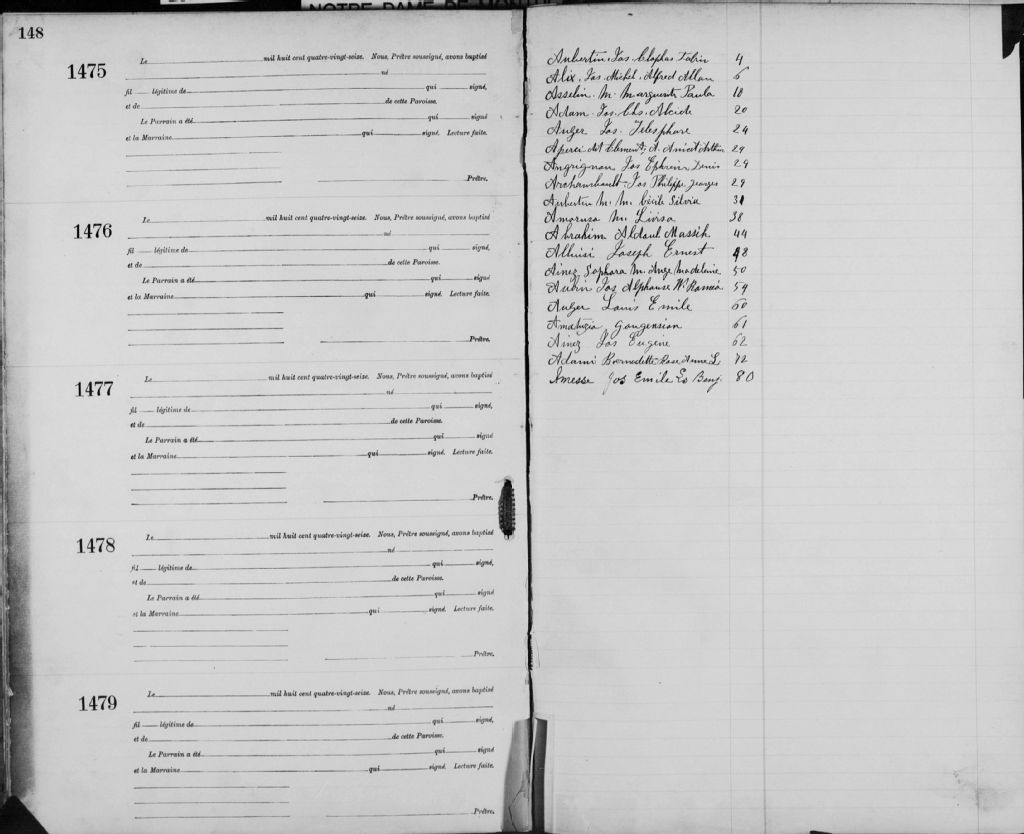 NOTRE DAME DE
148
1475
Le mil huit cent quatre-vingt-seize. Nous, Prêtre soussigné, avons baptisé
né
fil légitime de qui signé,
et de de cette Paroisse.
Le Parrain a été qui signé
et la Marraine qui signé. Lecture faite.
Prêtre.
1476
Le mil huit cent quatre-vingt-seize. Nous, Prêtre soussigné, avons baptisé
né
fil légitime de qui signé,
et de de cette Paroisse.
Le Parrain a été qui signé
et la Marraine qui signé. Lecture faite.
Prêtre.
1477
Le mil huit cent quatre-vingt-seize. Nous, Prêtre soussigné, avons baptisé
né
fil légitime de qui signé,
et de de cette Paroisse.
Le Parrain a été qui signé
et la Marraine qui signé. Lecture faite.
Prêtre.
1478
Le mil huit cent quatre-vingt-seize. Nous, Prêtre soussigné, avons baptisé
né
fil légitime de qui signé,
et de de cette Paroisse.
Le Parrain a été qui signé
et la Marraine qui signé. Lecture faite.
Prêtre.
1479
Le mil huit cent quatre-vingt-seize. Nous, Prêtre soussigné, avons baptisé
né
fil légitime de qui signé,
et de de cette Paroisse.
Le Parrain a été qui signé
et la Marraine qui signé. Lecture faite.
Prêtre.
Aubertin Jos. Cléophas 4
Alix, Jos. Michel, Alfred Allan 6
Asselin M. Marguerite Paula 18
Adam Jos. Chs. Alcide 20
Auger Jos. Telesphore 24
dit Clement, A. Anicet 29
Angrignon Jos Ephreim Denis 29
Archambault Jos Philippe Georges 29
Aubertin M. M. Cécile Silvia 31
Amoruso M. 38
Abrahim Massih 44
Joseph Ernest 48
Ainez Sophora M. Ange Madeleine 50
Aubin Jos Alphonse Wm Roméo 54
Auger Louis Emile 60
61
Ainez Jos Eugene 62
Adami Bernadette Rose Anne L 72
Amesse Jos Emile Benj. 80